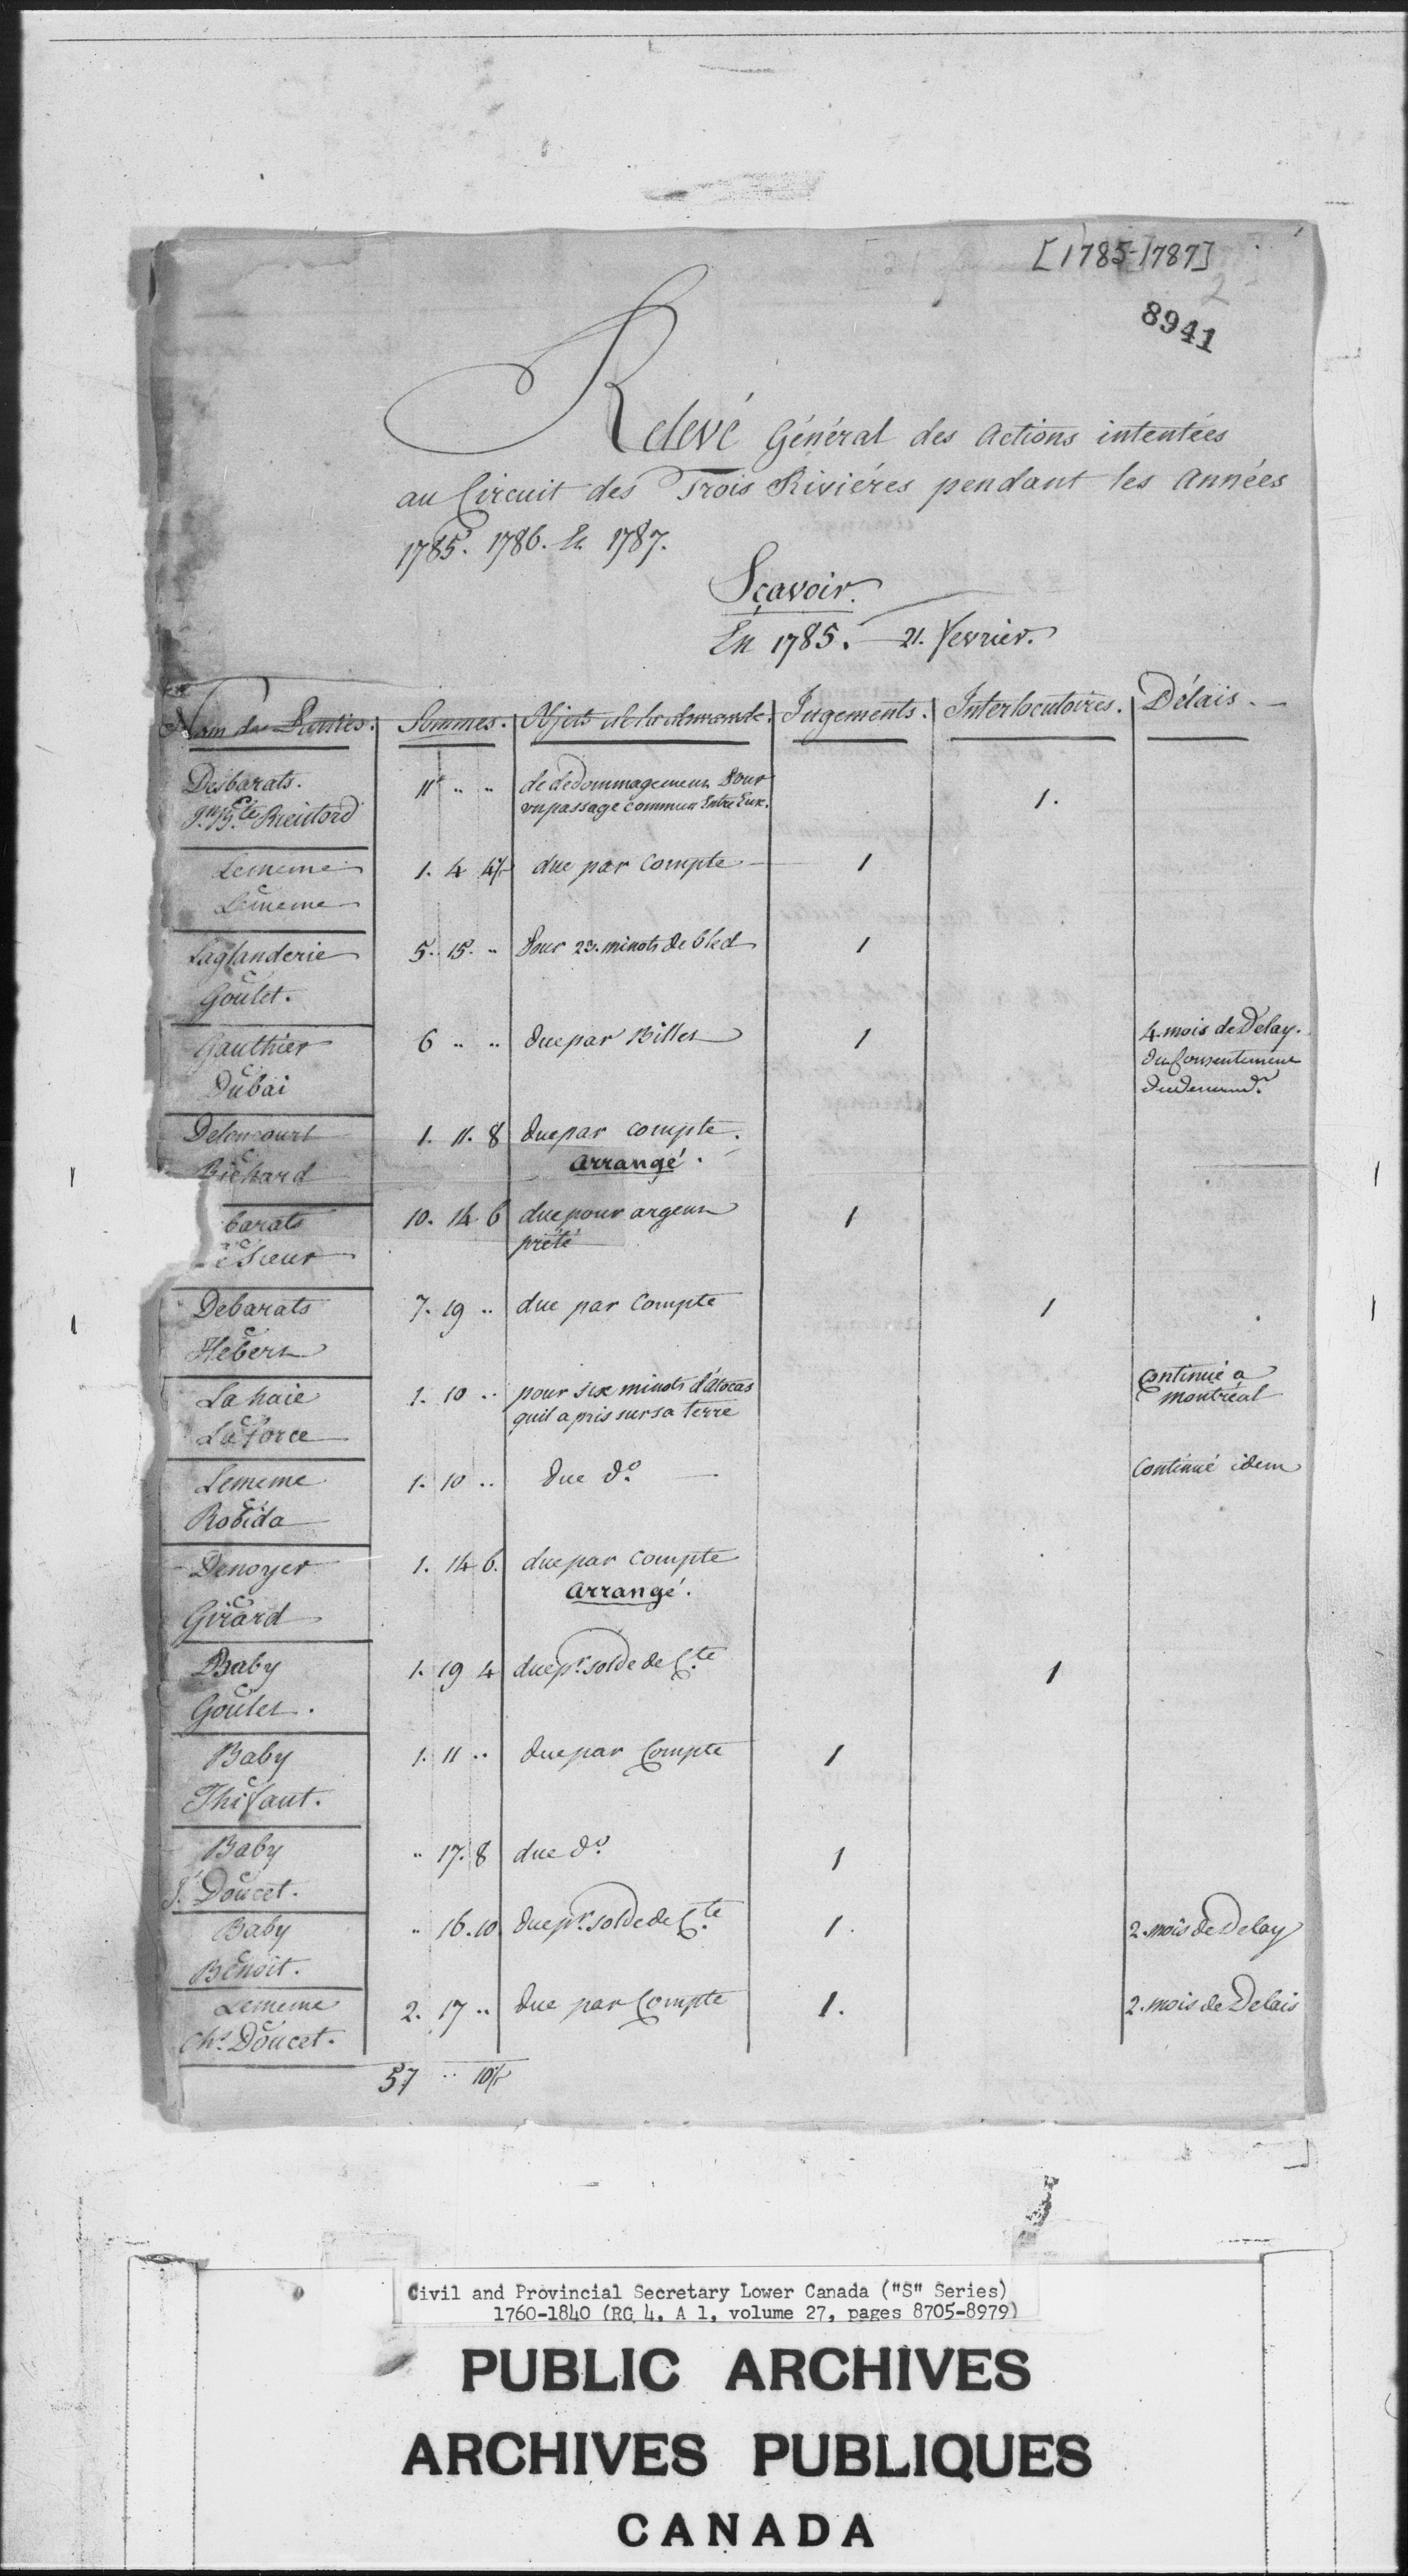 [1785-1787]
2
8941
Relevé Général des Actions intentées
au Circuit des Trois Riviéres pendant les Années
1785. 1786. & 1787.
Sçavoir.
En 1785. — 21. fevrier.
Nom des Parties. Sommes. Objets de la demande. Jugements. Interlocutoires. Délais.
Desbarats. 11 " " de dedommagement Pour
C
Jn. Bte. Rieutord un passage commun Entre Eux. 1.
Lememe 1. 4 4½ due par Compte 1
C
Lememe
Laglanderie 5. 15. " Pour 23. minots de bled 1
C
Goulet.
Gauthier 6 " " due par Billet 1 4. mois de Delay.
C du Consentement
Dubai du demandr.
Delencourt 1. 11. 8 due par compte.
C arrangé.
Richard
barats 10. 14 6 due pour argent 1
C prété
e Sieur
Debarats 7. 19 " due par Compte 1
C
Hebert
Lahaie 1. 10 " pour six minots d'atocas Continué a
C quil a pris sur sa terre montréal
Laforce
Lememe 1. 10 " due do. Continué idem
C
Robida
Denoyer 1. 14 6. due par Compte
C arrangé.
Girard
Baby 1. 19 4 due pr. solde de Cte 1
C
Goulet.
Baby 1. 11 " due par Compte 1
C
Thifaut.
Baby " 17. 8 due do. 1
C
J. Doucet.
Baby " 16. 10 due pr. solde de Cte 1. 2. mois de Delay
C
Benoit.
Lememe 2. 17 " due par Compte 1. 2. mois de Delais
C
Chs. Doucet.
57 " 10½
Civil and Provincial Secretary Lower Canada ("S" Series)
1760-1840 (RG 4, A 1, volume 27, pages 8705-8979)
PUBLIC ARCHIVES
ARCHIVES PUBLIQUES
CANADA